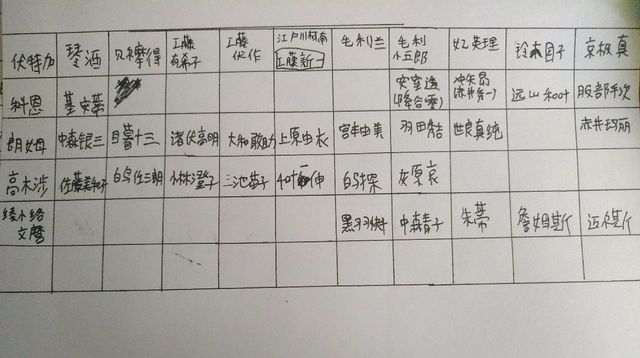 伏特加 琴酒 贝尔摩得 工藤有希子 工藤优作 江户川柯南 工藤新一 毛利兰 毛利小五郎 妃英理 铃木园子 京极真
科恩 基安蒂 安室透(降谷零) 冲矢昴(赤井秀一) 远山和叶 服部平次
朗姆 中森银三 目暮十三 诸伏高明 大和敢助 上原由衣 宫本由美 羽田秀吉 世良真纯 赤井玛丽
高木涉 佐藤美和子 白鸟任三郎 小林澄子 三池苗子 千叶一伸 白马探 灰原哀
绫小路文麿 黑羽快斗 中森青子 朱蒂 詹姆斯 迈米斯